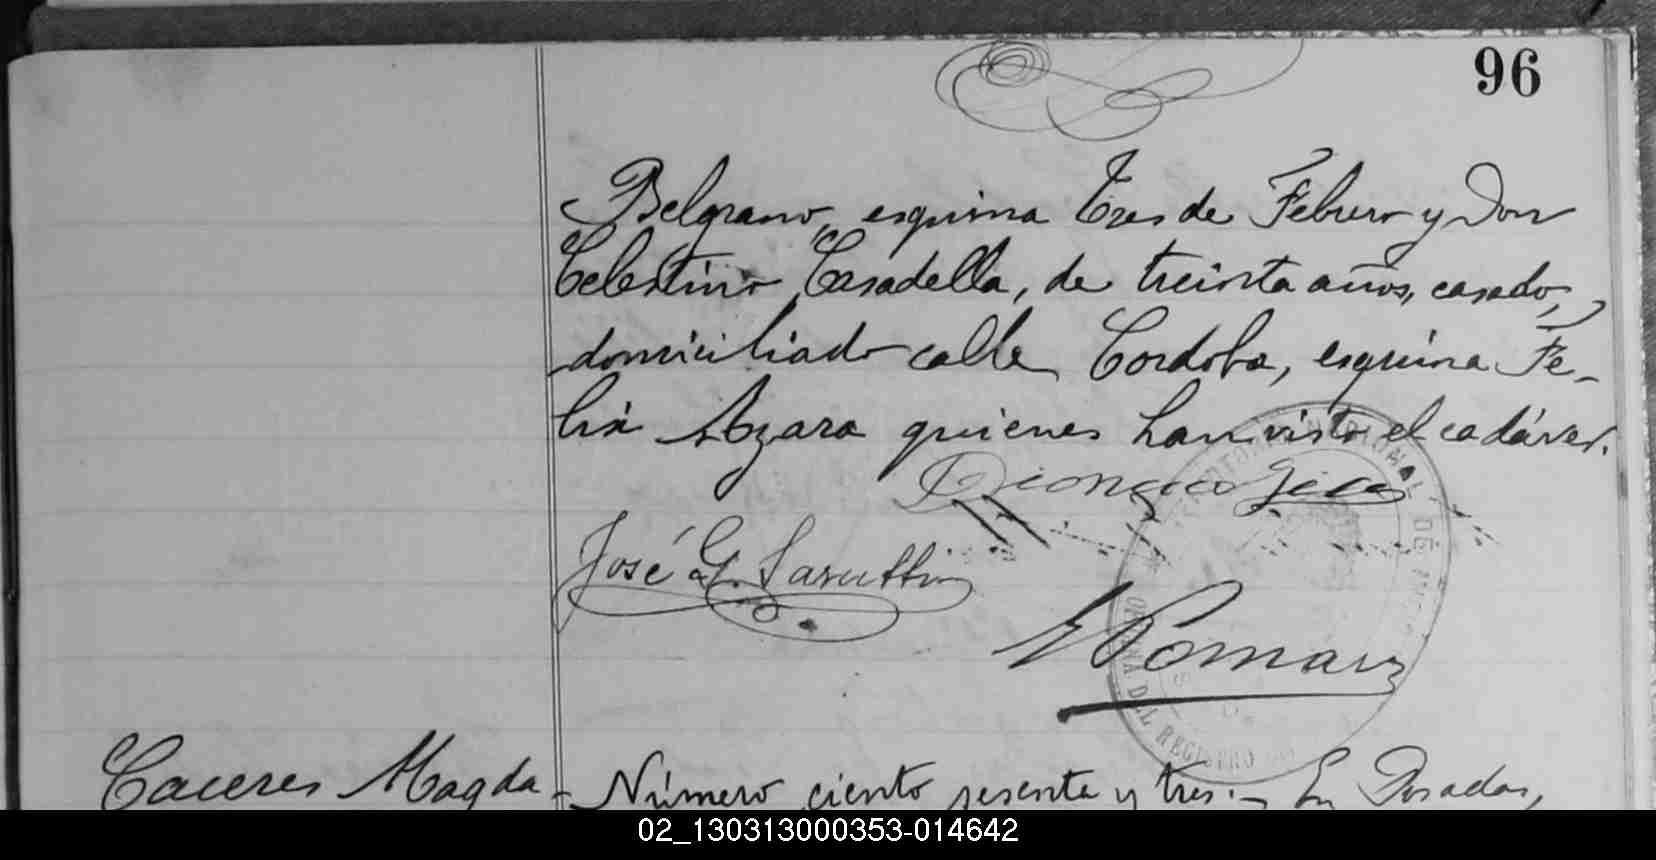 96
Belgrano, esquina Tres de Febrero y Don
Celestino Casadella, de treinta años, casado,
domiciliado calle Cordoba, esquina Fe-
lix Azara quienes han visto el cadáver.
José G.
Caceres Magda - Número ciento sesenta y tres.- En Posadas,
02_130313000353-014642